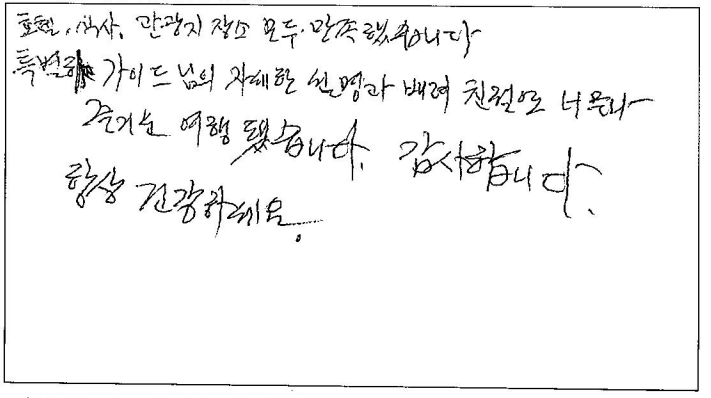 호텔, 식사, 관광지 장소 모두 만족했습니다
특별히 가이드님의 자세한 설명과 배려 친절으로 너무나
즐거운 여행 됐습니다. 감사합니다.
항상 건강하세요.